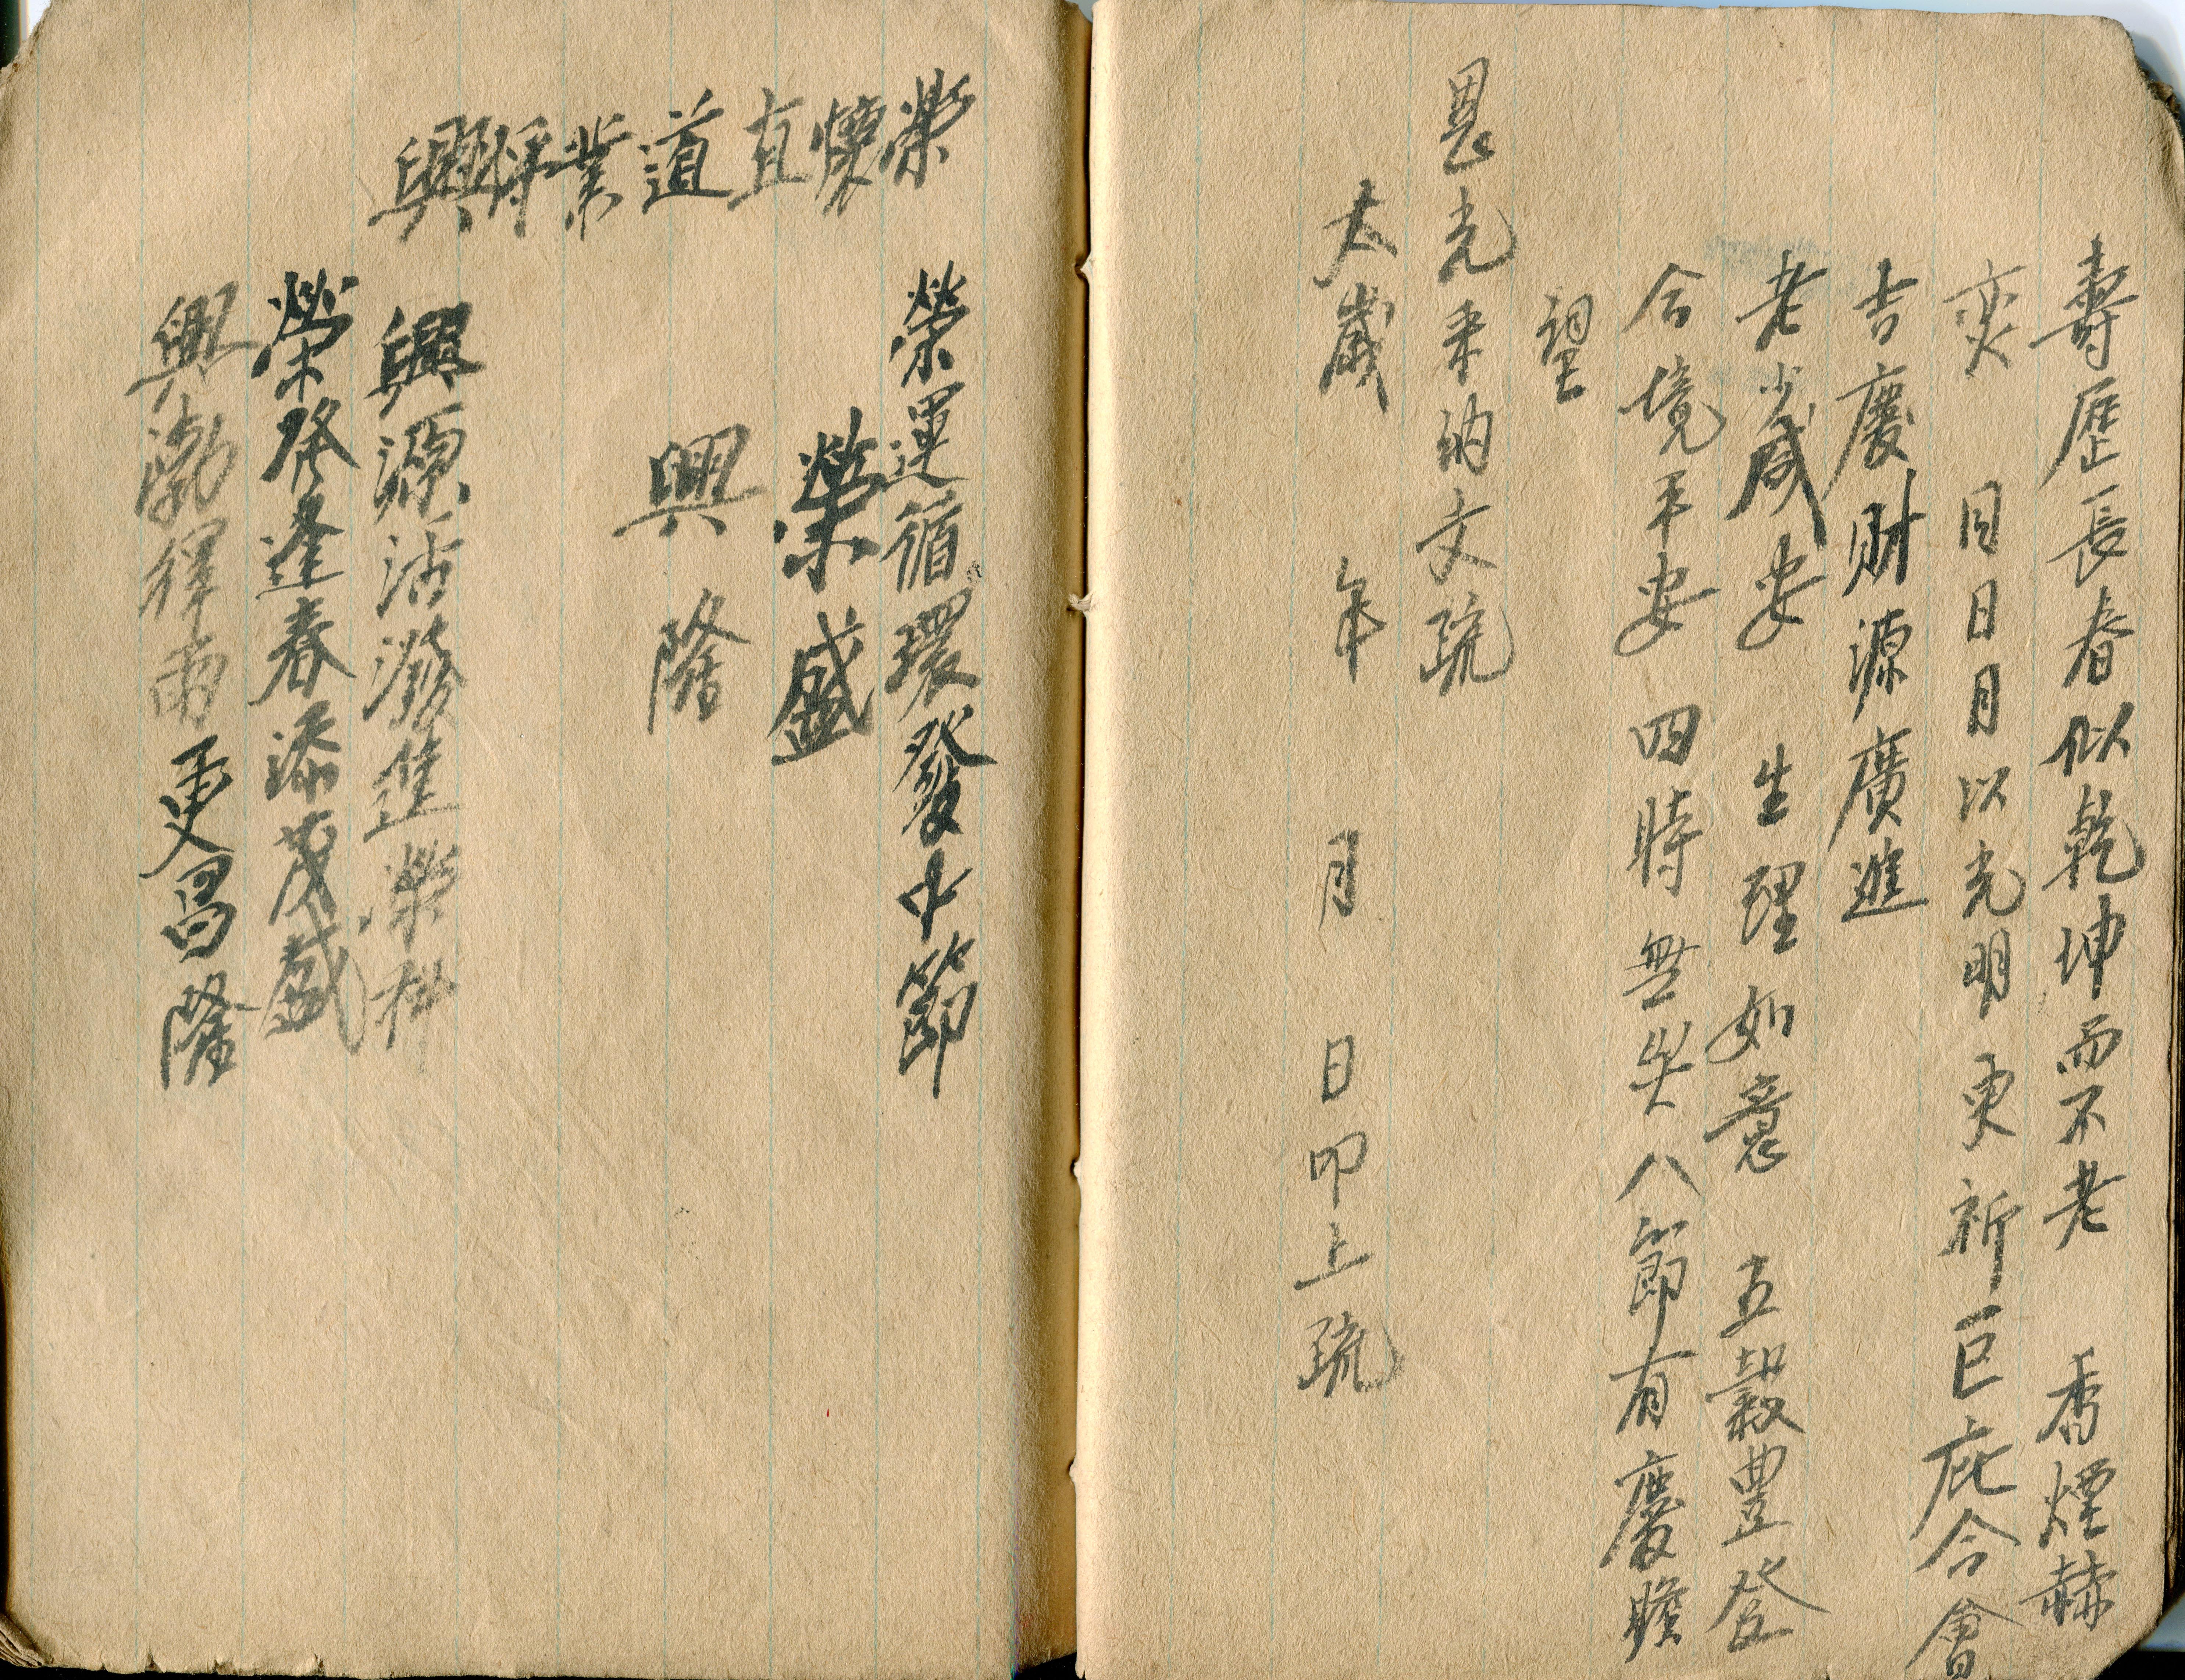 壽歷長春似乾坤而不老　香煙赫
奕　同日月以光明更祈巨庇合會
吉慶財源廣進
老少咸安　生理如意　五穀豊登
合境平安　四時無災八節有慶瞻
望
恩光来納文疏
太歲　年　月　日叩上疏
榮懷直道業將興
榮運循環發中節
榮盛
興隆
興源沾潑進榮林
榮發逢春添茂盛
興渤澤雨更昌隆